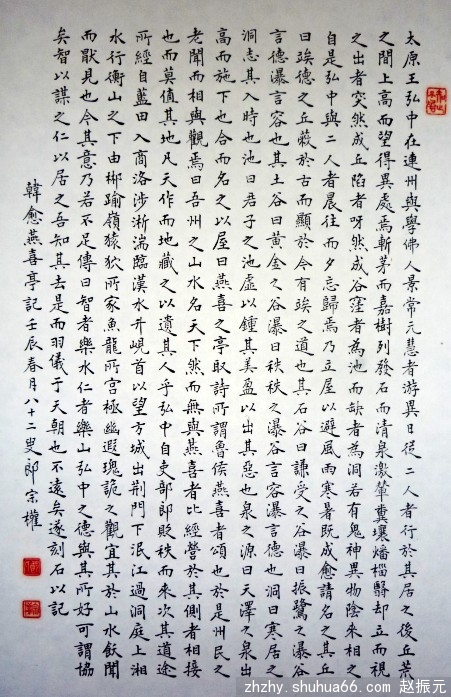 太原王弘中在連州與學佛人景常元慧者游異日從二人者行於其居之後丘荒
之間上高而望得異處焉斬茅而嘉樹列發石而清泉激輦糞壤燔椔翳却立而視
之出者突然成丘陷者呀然成谷窪者為池而缺者為洞若有鬼神異物陰來相之
自是弘中與二人者晨往而夕忘歸焉乃立屋以避風雨寒暑既成愈請名之其丘
曰竢德之丘蔽於古而顯於今有竢之道也其石谷曰謙受之谷瀑曰振鷺之瀑谷
言德瀑言容也其土谷曰黃金之谷瀑曰秩秩之瀑谷言容瀑言德也洞曰寒居之
洞志其入時也池曰君子之池虛以鍾其美盈以出其惡也泉之源曰天澤之泉出
高而施下也合而名之以屋曰燕喜之亭取詩所謂魯侯燕喜者頌也於是州民之
老聞而相與觀焉曰吾州之山水名天下然而無與燕喜者比經營於其側者相接
也而莫值其地凡天作而地藏之以遺其人乎弘中自吏部郎貶秩而來次其道途
所經自藍田入商洛涉淅湍臨漢水升峴首以望方城出荊門下岷江過洞庭上湘
水行衡山之下由郴踰嶺猿狖所家魚龍所宮極幽遐瑰詭之觀宜其於山水飫聞
而厭見也今其意乃若不足傳曰智者樂水仁者樂山弘中之德與其所好可謂協
矣智以謀之仁以居之吾知其去是而羽儀于天朝也不遠矣遂刻石以記
韓愈燕喜亭記壬辰春月八十二叟郎宗權
zhzhy.shuhua66.com 赵振元